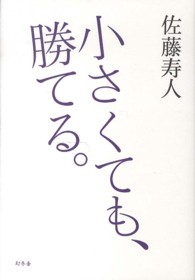 佐藤寿人
小さくても、
勝てる。
幻冬舎